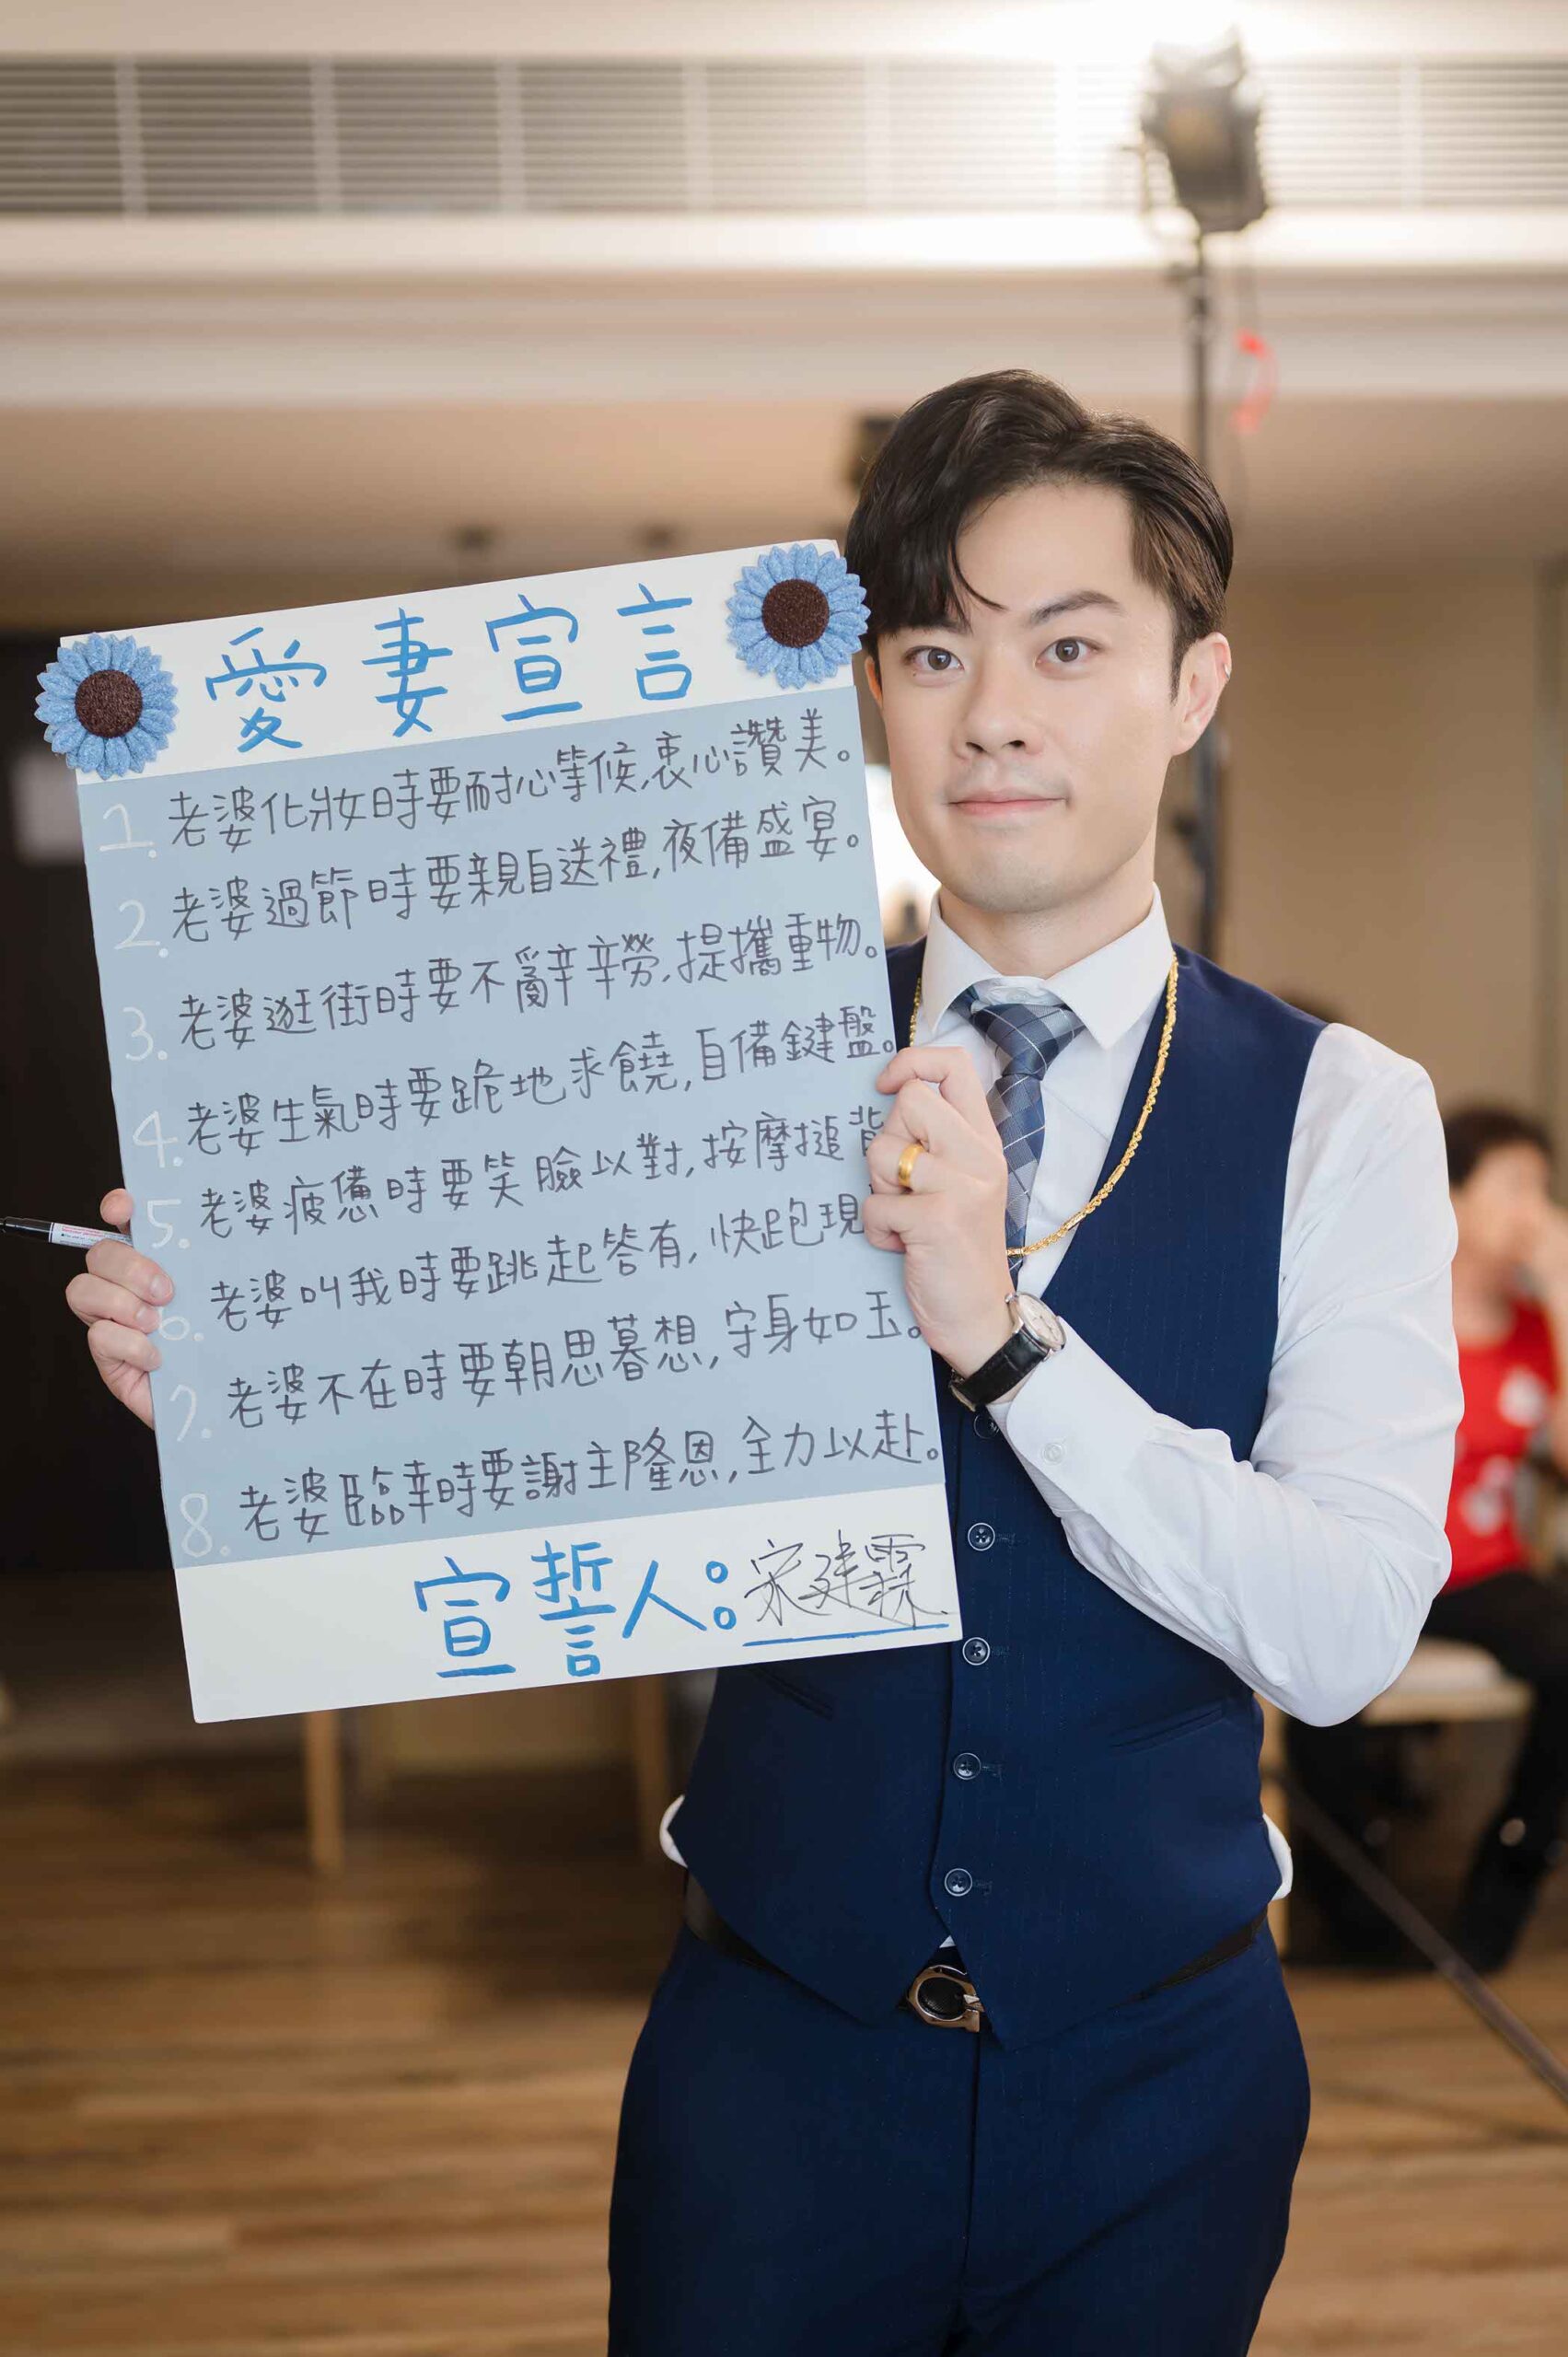 愛妻宣言
1. 老婆化妝時要耐心等候,衷心讚美。
2. 老婆過節時要親自送禮,夜備盛宴。
3. 老婆逛街時要不辭辛勞,提攜重物。
4. 老婆生氣時要跪地求饒,自備鍵盤。
5. 老婆疲憊時要笑臉以對,按摩搥背
6. 老婆叫我時要跳起答有,快跑現
7. 老婆不在時要朝思暮想,守身如玉。
8. 老婆臨幸時要謝主隆恩,全力以赴。
宣誓人:宋建霖